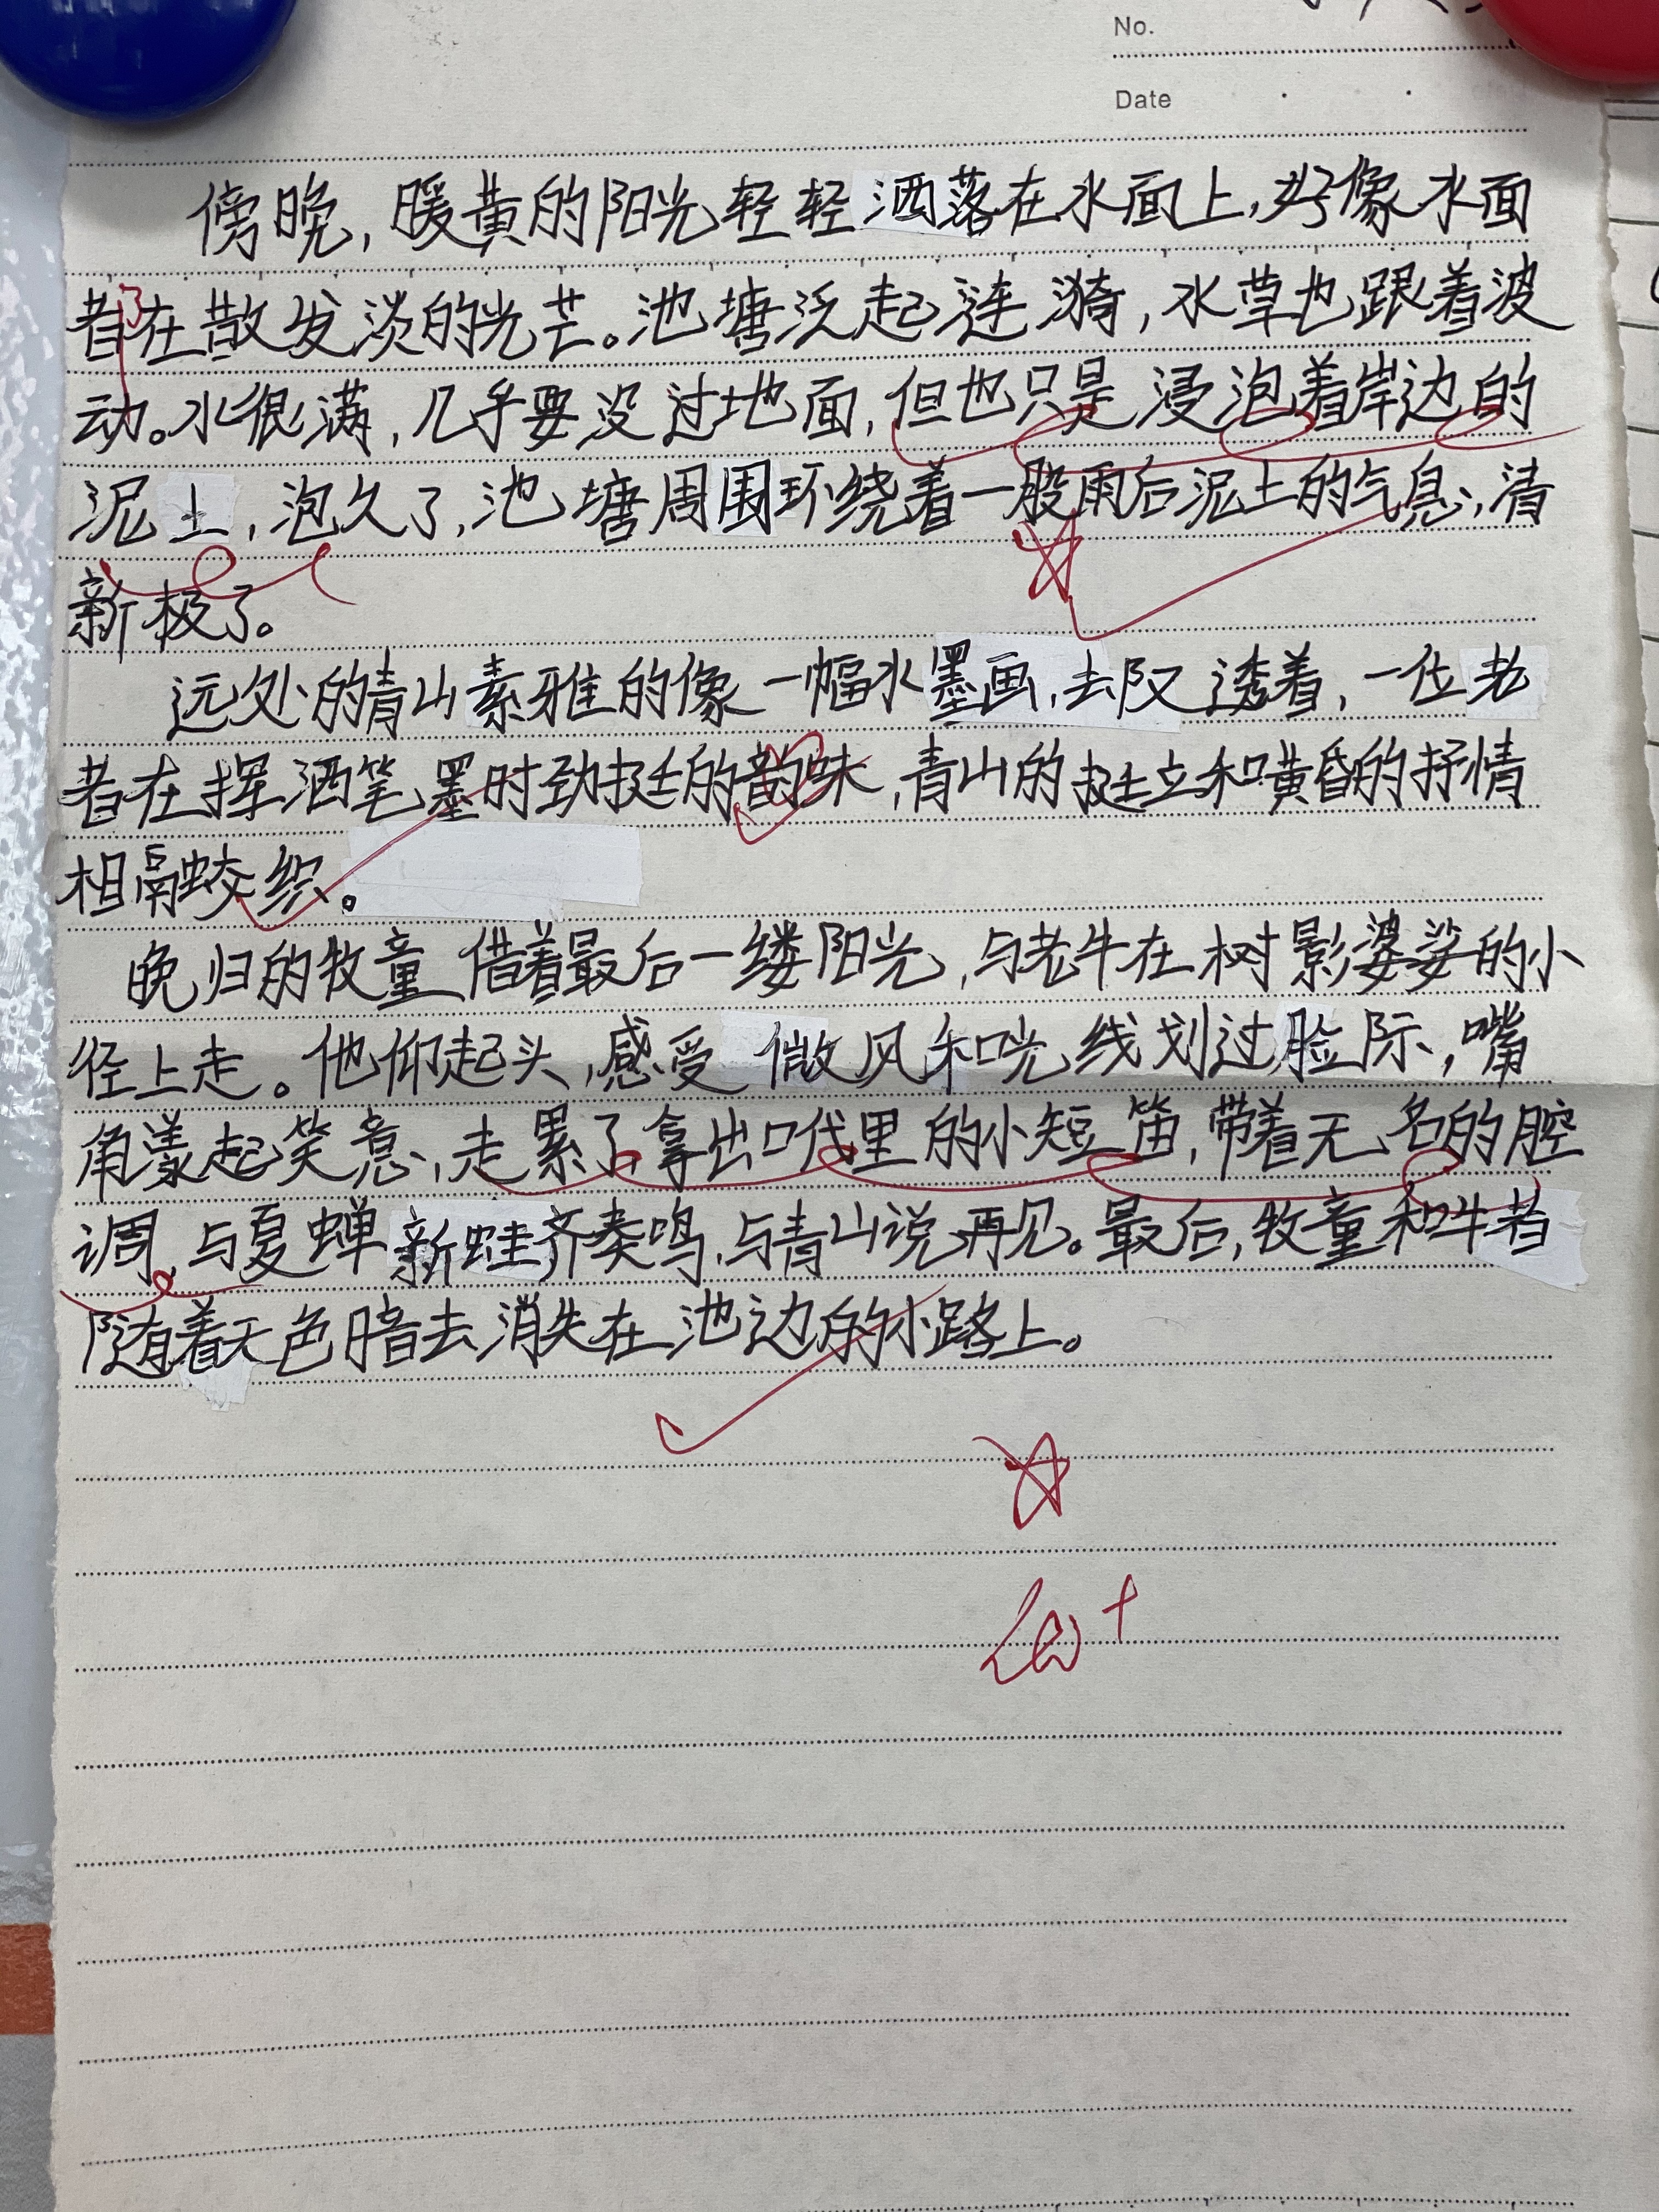 No.
Date
傍晚，暖黄的阳光轻轻洒落在水面上，好像水面
都在散发淡的光芒。池塘泛起涟漪，水草也跟着波
动。水很满，几乎要没过地面，但也只是浸泡着岸边的
泥土，泡久了，池塘周围环绕着一股雨后泥土的气息，清
新极了。
远处的青山素雅的像一幅水墨画，去又透着，一位老
者在挥洒笔墨时劲挺的韵味，青山的挺立和黄昏的抒情
相融交织。
晚归的牧童借着最后一缕阳光，与老牛在树影婆娑的小
径上走。他仰起头，感受微风和光线划过脸际，嘴
角漾起笑意，走累了拿出口袋里的小短笛，带着无名的腔
调，与夏蝉新蛙齐奏鸣，与青山说再见。最后，牧童和牛都
随着天色暗去消失在池边的小路上。